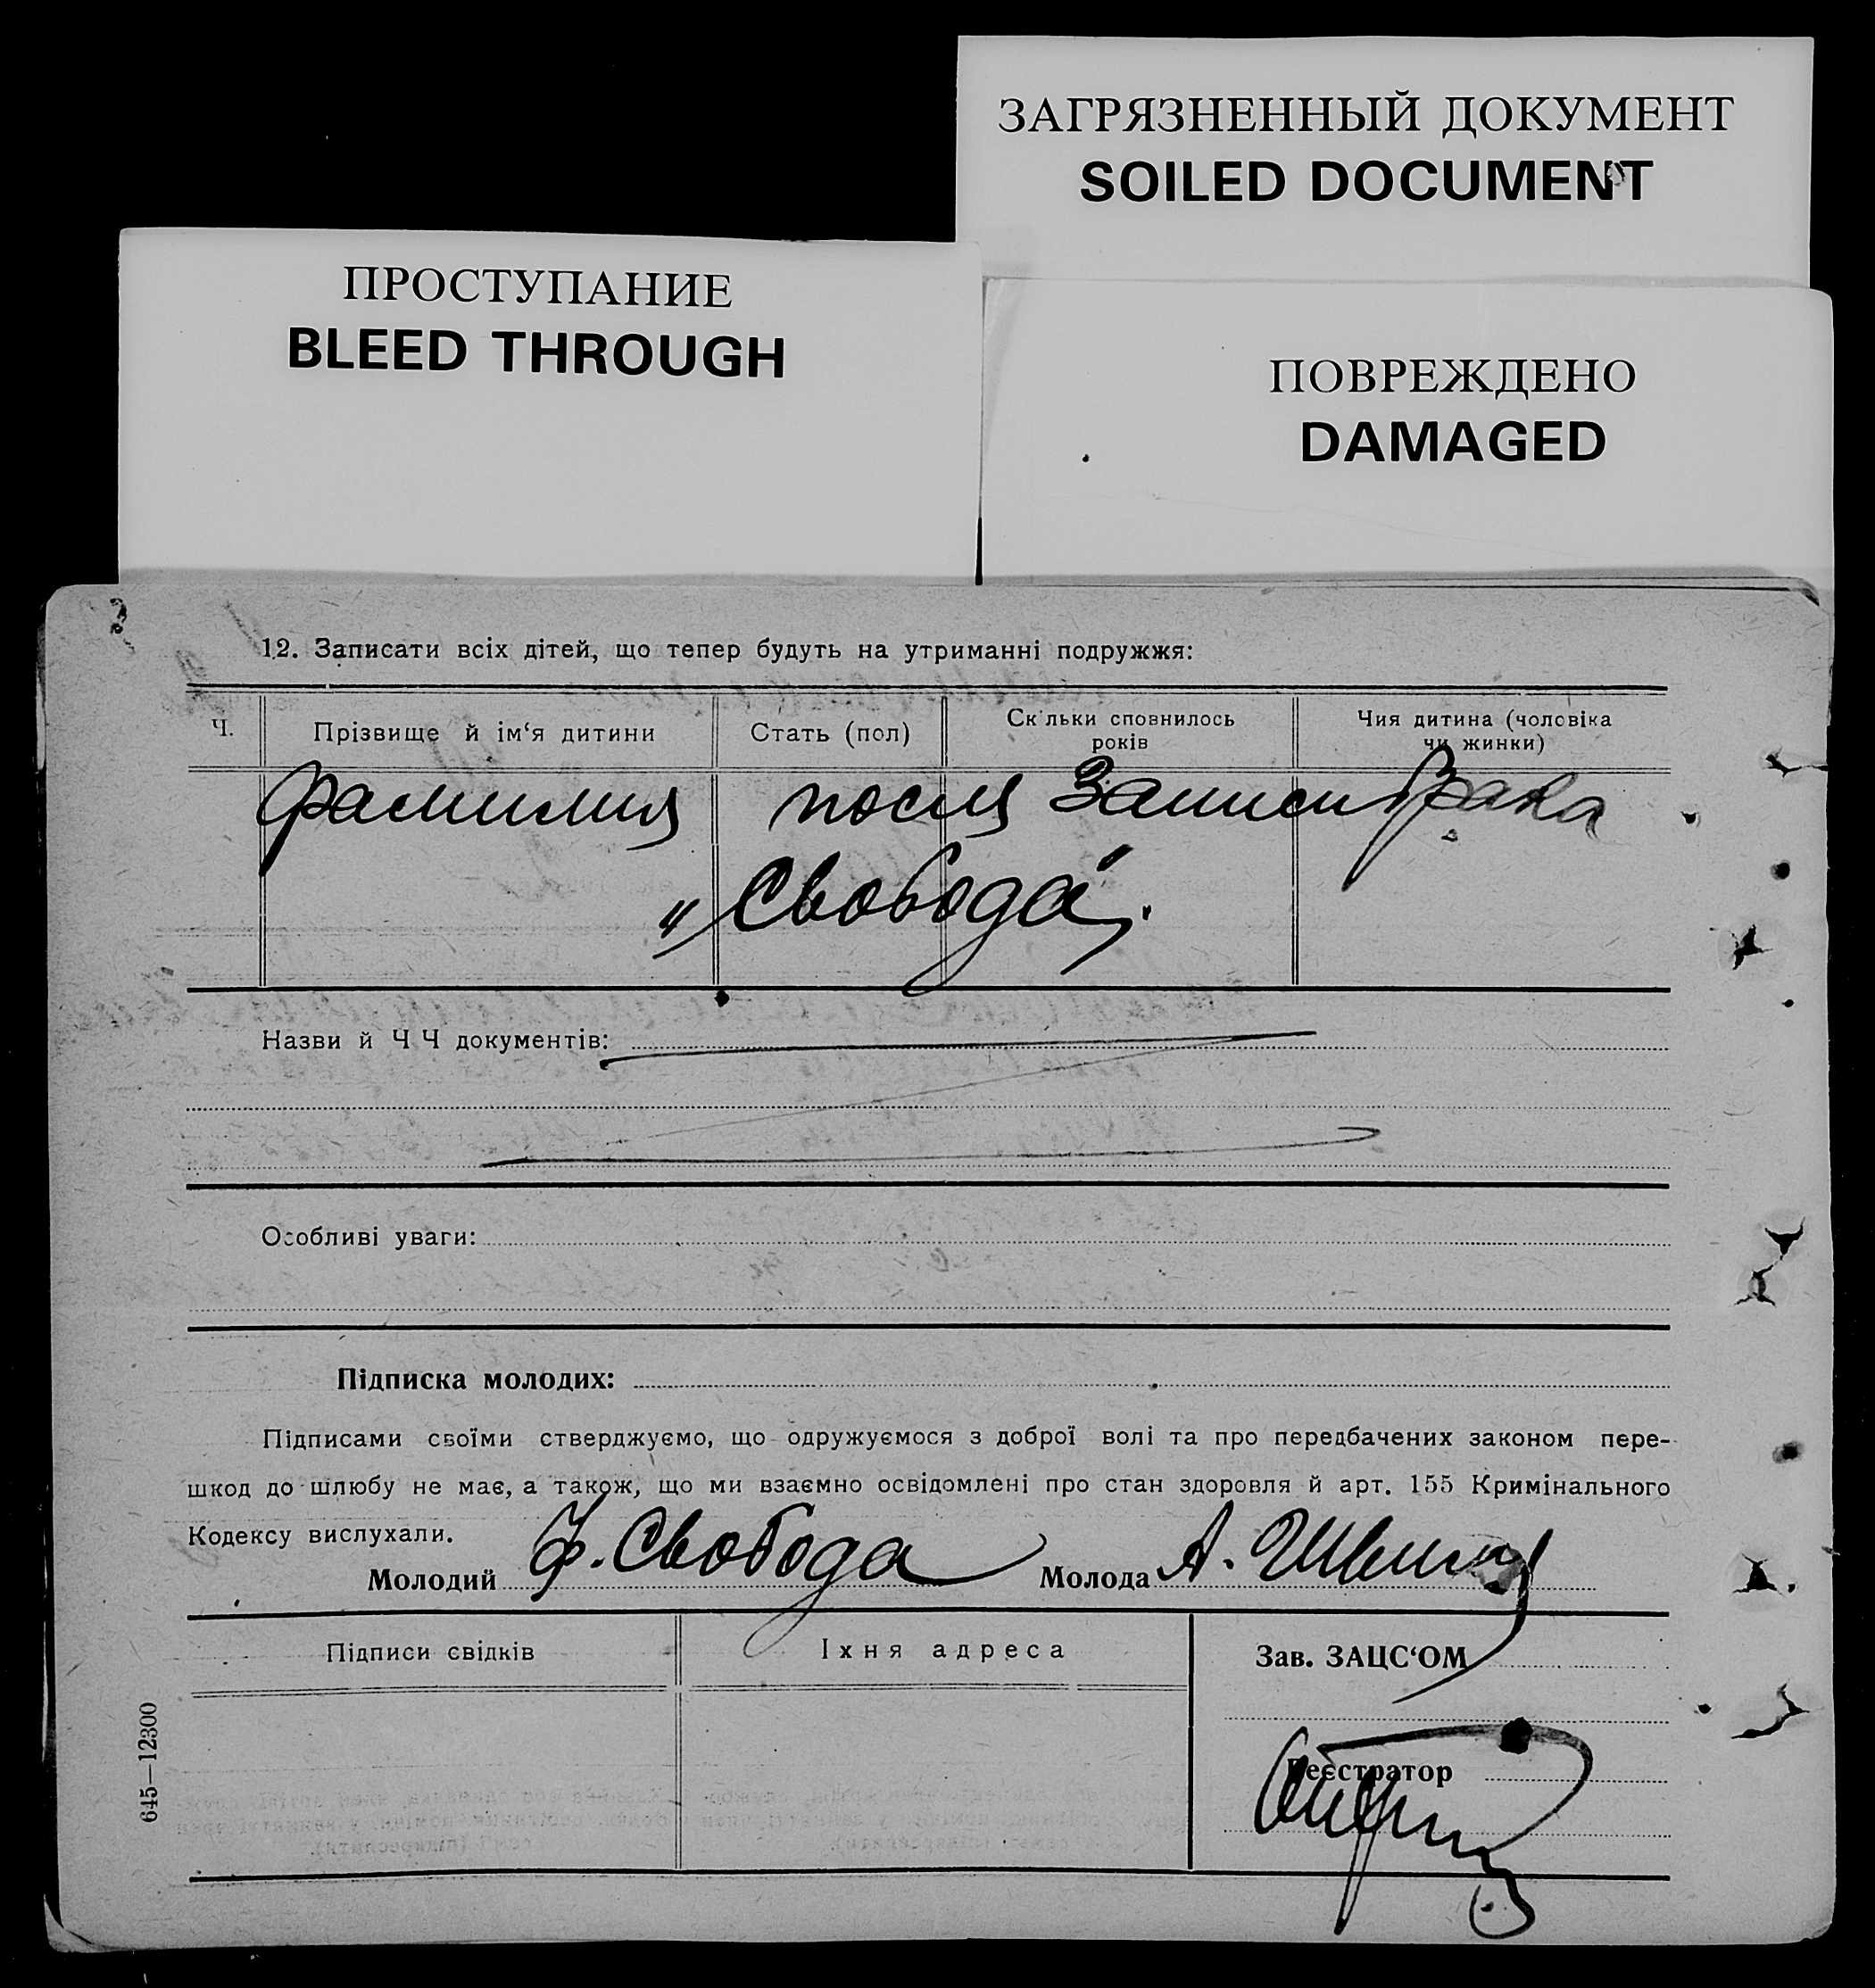 ЗАГРЯЗНЕННЫЙ ДОКУМЕНТ
SOILED DOCUMENT
ПРОСТУПАНИЕ
BLEED THROUGH
ПОВРЕЖДЕНО
DAMAGED
12. Записати всіх дітей, що тепер будуть на утриманні подружжя:
Ч.
Прізвище й ім‘я дитини
Стать (пол)
Скільки сповнилось
років
Чия дитина (чоловіка
чи жинки)
фамилия посля Записи брака
„Свобода“.
Назви й Ч Ч документів:
Особливі уваги:
Підписка молодих:
Підписами своїми стверджуємо, що одружуємося з доброї волі та про передбачених законом пере-
шкод до шлюбу не має, а також, що ми взаємно освідомлені про стан здоровля й арт. 155 Кримінального
Кодексу вислухали.
Молодий Ф. Свобода Молода А.
Підписи свідків
Їхня адреса
Зав. ЗАЦС‘ОМ
Реєстратор
645—12300